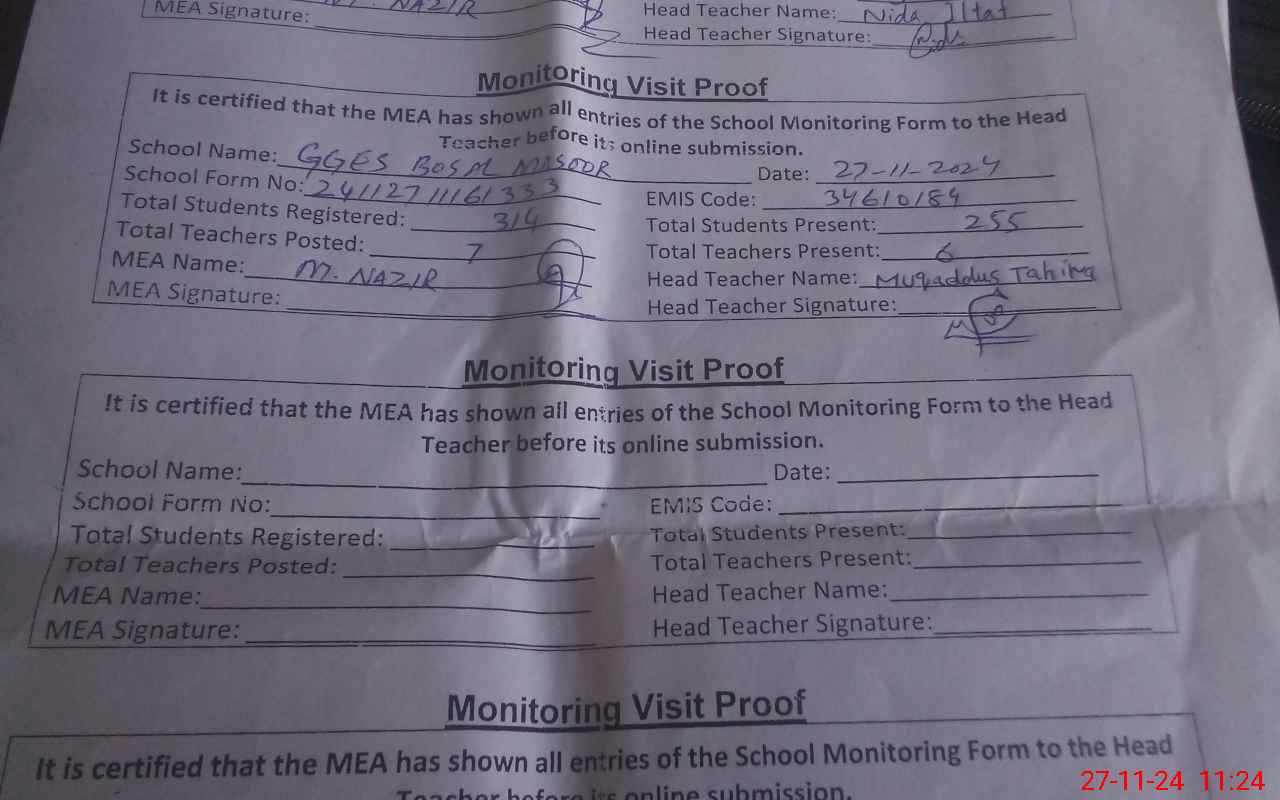 MEA Signature: NAZIR Head Teacher Name: Nida Iltaf
Head Teacher Signature:
Monitoring Visit Proof
It is certified that the MEA has shown all entries of the School Monitoring Form to the Head
Teacher before its online submission.
School Name: GGES BOSAL MASOOR Date: 27-11-2024
School Form No: 24112711161333 EMIS Code: 34610184
Total Students Registered: 314 Total Students Present: 255
Total Teachers Posted: 7 Total Teachers Present: 6
MEA Name: M. NAZIR Head Teacher Name: Muqaddus Tahira
MEA Signature: Head Teacher Signature:
Monitoring Visit Proof
It is certified that the MEA has shown all entries of the School Monitoring Form to the Head
Teacher before its online submission.
School Name: Date:
School Form No: EMIS Code:
Total Students Registered: Total Students Present:
Total Teachers Posted: Total Teachers Present:
MEA Name: Head Teacher Name:
MEA Signature: Head Teacher Signature:
Monitoring Visit Proof
It is certified that the MEA has shown all entries of the School Monitoring Form to the Head
Teacher before its online submission.
27-11-24 11:24